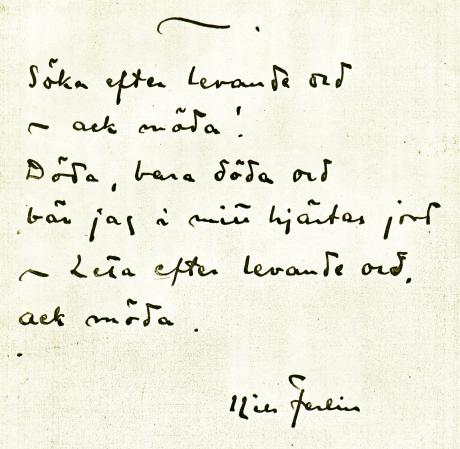 Söka efter levande ord
~ ack möda!
Döda, bara döda ord
bär jag i mitt hjärtas jord
~ Leta efter levande ord,
ack möda.
Nils Ferlin